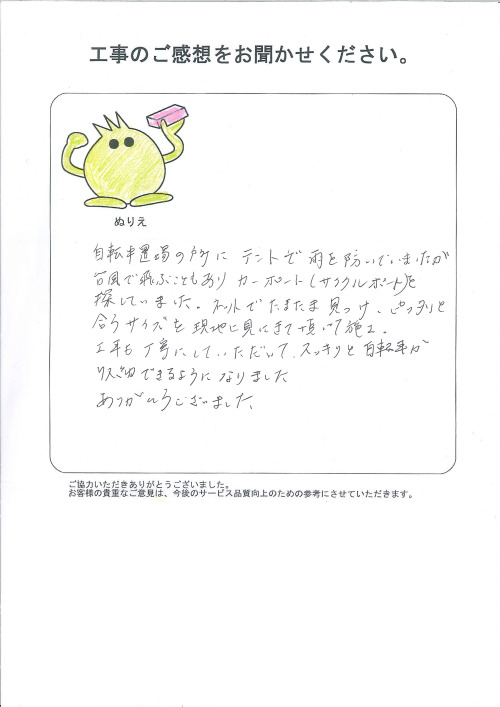 工事のご感想をお聞かせください。
ぬりえ
自転車置場の所に テントで 雨を防いでいましたが
台風で飛ぶこともあり カーポート(サイクルポート)を
探していました。ネットでたまたま見つけ、ピッタリと
合うサイズを現地に見にきて頂いて施工。
工事も丁寧にしていただいて、スッキリと自転車が
収納できるように なりました
ありがとうございました。
ご協力いただきありがとうございました。
お客様の貴重なご意見は、今後のサービス品質向上のための参考にさせていただきます。